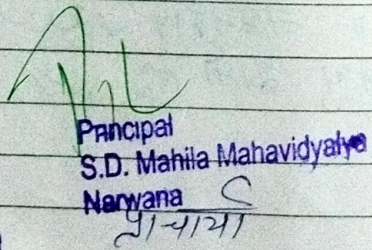 Principal
S.D. Mahila Mahavidyalya
Narwana
प्राचार्या